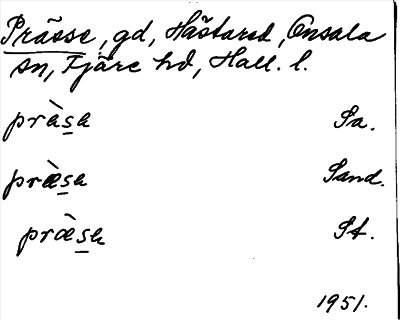 Prässe, gd, Hästared, Onsala
sn, Fjäre hd, Hall. l.
præ̀sə Sa.
præ̀sə Sand.
præ̀sə St.
1951.